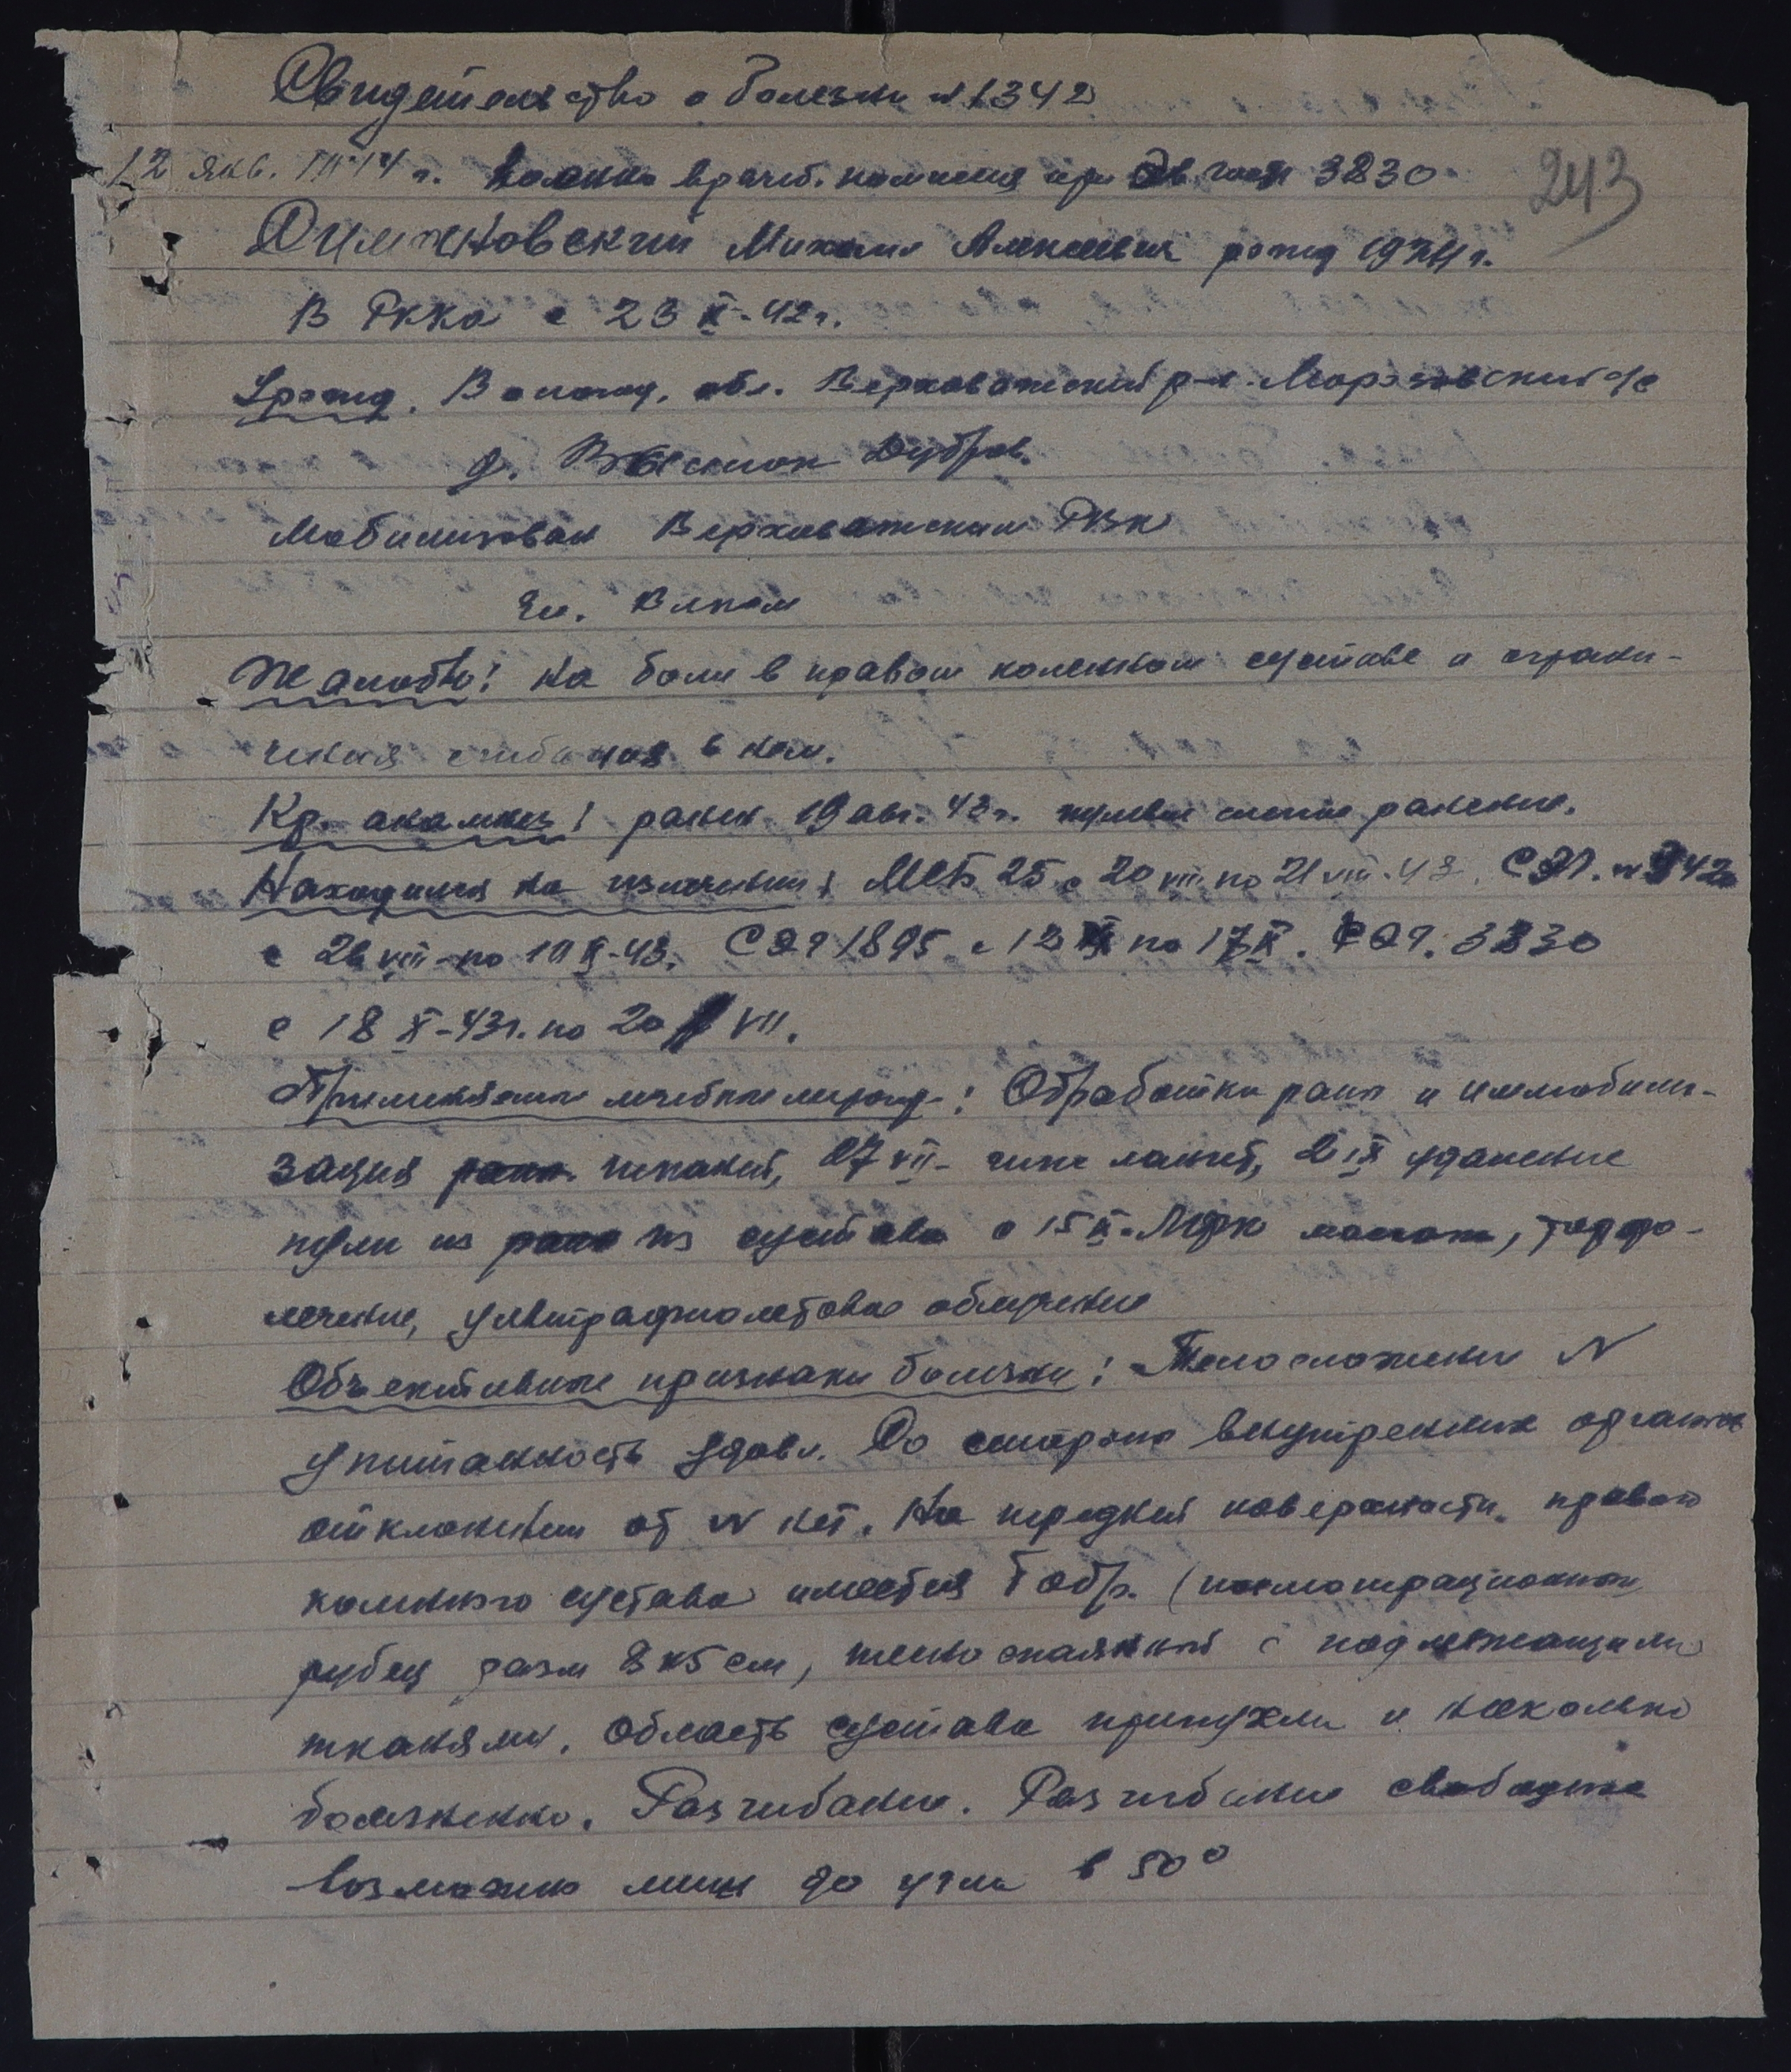 Свидетельство о болезни №1342
243
12 янв. 1944 г. Военно врачеб. комиссия при Эв. госп 3830
Михаил Алексеевич рожд 1924 г.
В РККА с 23 X-42 г.
Урожд. Вологод. обл. Верховажский р-н. Морозовский с/с
д. Дубров.
Мобилизован Верховажским РВК
Жалобы: на боли в правом коленном суставе и ограни-
чения сгибания в нем.
Кр. анамнез: ранен 19 авг. 43 г. пулевое слепое ранение.
Находился на излечении: МСБ 25 с 20 VIII по 21 VIII-43. СЭГ. №
с 26 VIII-по 10 X-43. СЭГ 1895 с 12 по 17 X. ЭГ. 3830
с 18 X-43 г. по 20 VII.
Применяемые лечебные мероп.: Обработка раны и иммобили-
зация шиной, 27 VII- гипс лангет, 2 IX удаление
пули из из сустава с 15 X- ЛФК массаж, торфо-
лечение, ультрафиолетовое облучение
Объективные признаки болезни: Телосложение N
упитанность удовл. Со стороны внутренних органов
отклонений от N нет. На передней поверхности правого
коленного сустава имеется Т обр. (послеоперационный
рубец разм 8х5 см, плотно спаянный с подлежащими
тканями. Область сустава припухла и несколько
болезненно. Разгибание. Разгибание свободное
возможно лишь до угла в 50°